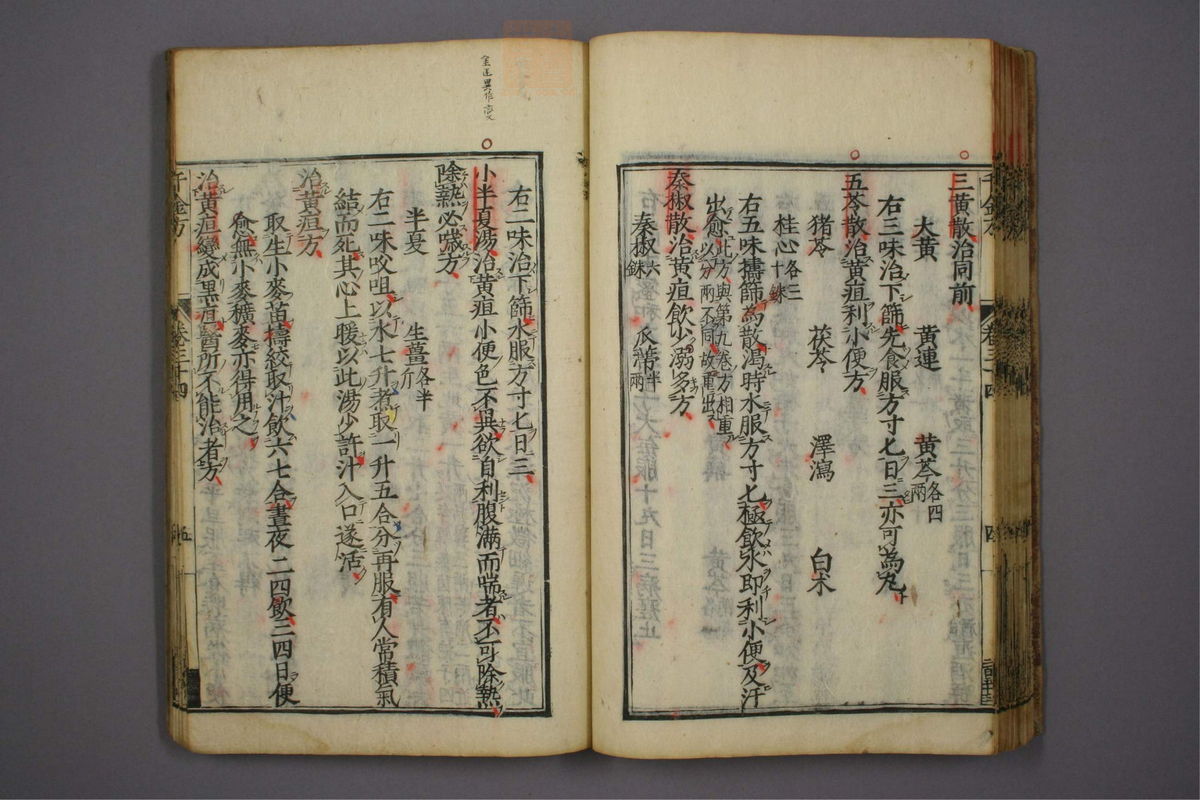 三黃散治同前
大黃 黃連 黃芩各四兩
右三味治下篩先食服方寸匕日三亦可為丸
五苓散治黃疸利小便方
猪苓 茯苓 澤瀉 白术
桂心各三十銖
右五味擣篩為散渴時水服方寸匕極飲水即利小便及汗
出愈此方與第九卷方相重以分兩不同故重出
秦椒散治黃疸飲少溺多方
秦椒六銖 瓜蒂半兩
右二味治下篩水服方寸匕日三
小半夏湯治黃疸小便色不異欲自利腹滿而喘者不可除熱
除熱必噦方
半夏 生薑各半斤
右二味㕮咀以水七升煮取一升五合分再服有人常積氣
結而死其心上暖以此湯少許汁入口遂活
治黃疸方
取生小麥苗擣絞取汁飲六七合晝夜三四飲三四日便
愈無小麥穬麥亦得用之
治黃疸變成黑疸醫所不能治者方
千金方 卷三十四 五
千金方 卷三十四 四